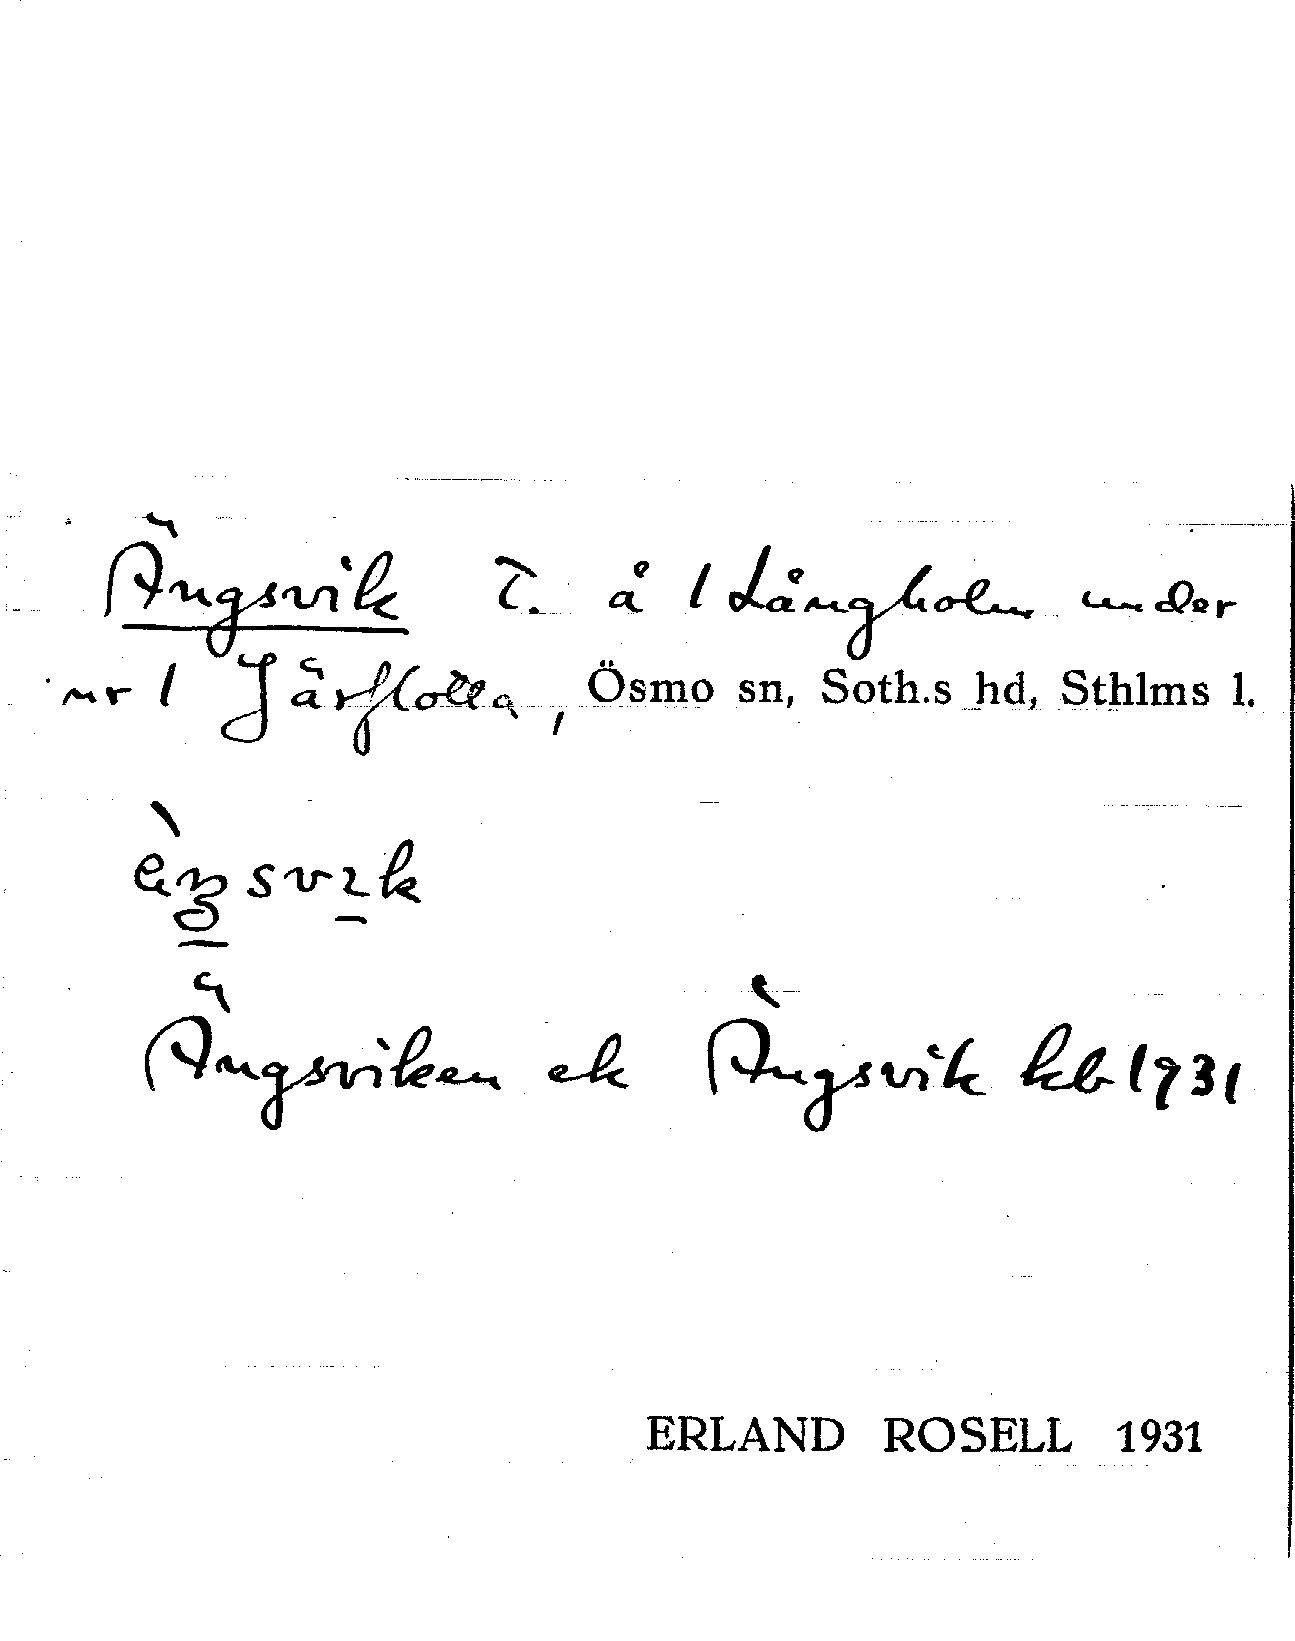 Ängsvik T. å 1 Långholm under
nr 1 Järflotta, Ösmo sn, Soth.s hd, Sthlms l.
ängsvik
Ängsviken ek Ängsvik kb 1931
ERLAND ROSELL 1931